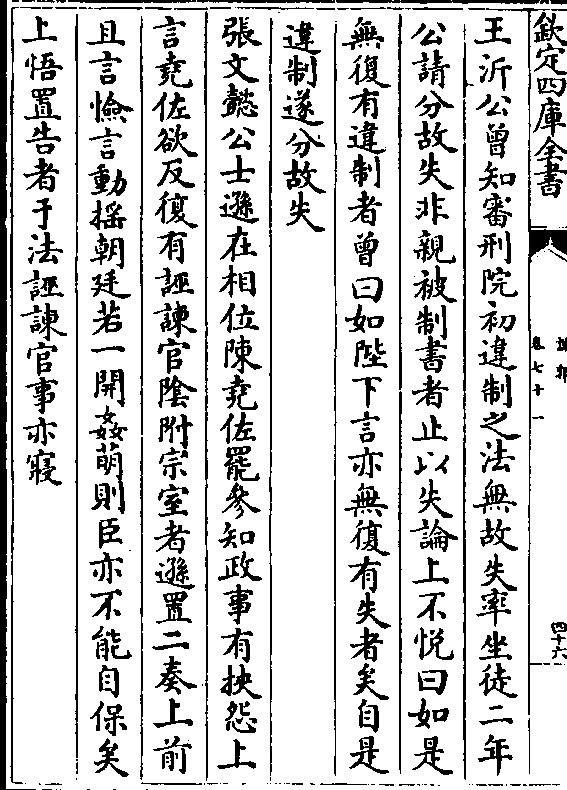 欽定四庫全書
說郛
卷七十一
四十六
王沂公曾知審刑院初違制之法無故失率坐徒二年
公請分故失非親被制書者止以失論上不悅曰如是
無復有違制者曾曰如陛下言亦無復有失者矣自是
違制遂分故失
張文懿公士遜在相位陳堯佐罷參知政事有挾怨上
言堯佐欲反復有誣諫官陰附宗室者遜置二奏上前
且言憸言動搖朝廷若一開姦萌則臣亦不能自保矣
上悟置告者于法誣諫官事亦寢